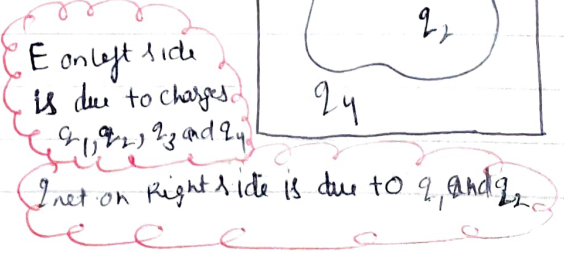 q2
E on left side
is due to charges
q1, q2, q3 and q4
q4
q net on Right side is due to q1 and q2